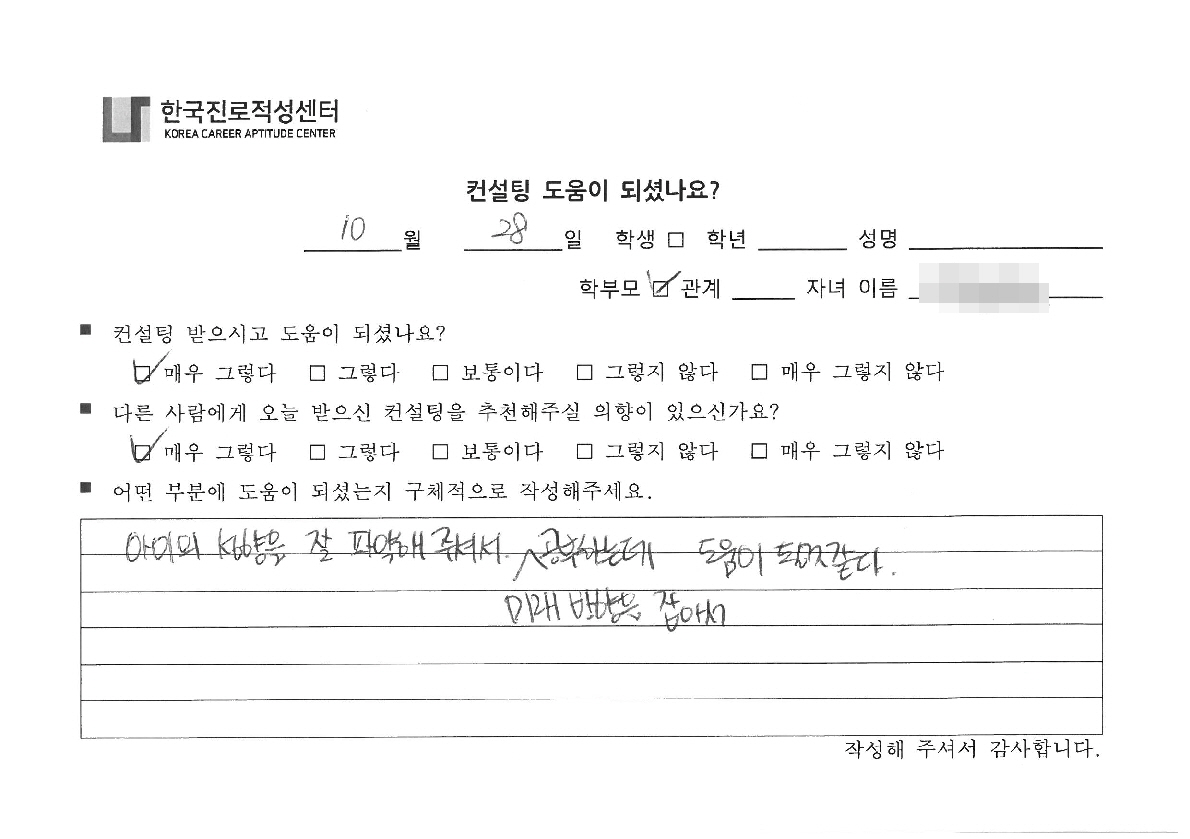 한국진로적성센터
KOREA CAREER APTITUDE CENTER
컨설팅 도움이 되셨나요?
10 월 28 일 학생 □ 학년 성명
학부모 ☑ 관계 자녀 이름
■ 컨설팅 받으시고 도움이 되셨나요?
☑ 매우 그렇다 □ 그렇다 □ 보통이다 □ 그렇지 않다 □ 매우 그렇지 않다
■ 다른 사람에게 오늘 받으신 컨설팅을 추천해주실 의향이 있으신가요?
☑ 매우 그렇다 □ 그렇다 □ 보통이다 □ 그렇지 않다 □ 매우 그렇지 않다
■ 어떤 부분에 도움이 되셨는지 구체적으로 작성해주세요.
아이의 성향을 잘 파악해 주셔서. 공부하는데 도움이 될것같다.
미래 방향을 잡아서
작성해 주셔서 감사합니다.